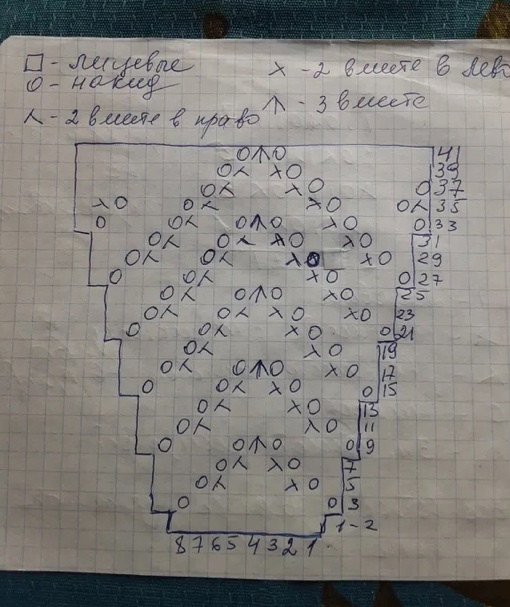 □ - лицевые
х - 2 вместе в лево
о - накид
⋏ - 2 вместе в право
↑ - 3 вместе
41
39
37
35
33
31
29
27
25
23
21
19
17
15
13
11
9
7
5
3
1-2
8 7 6 5 4 3 2 1